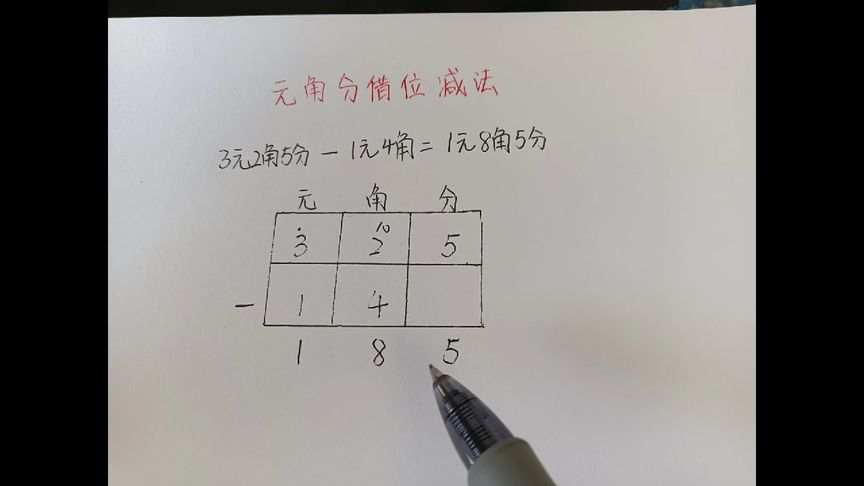 元角分借位减法
3元2角5分－1元4角＝1元8角5分
元 角 分
10
3 2 5
－ 1 4
1 8 5